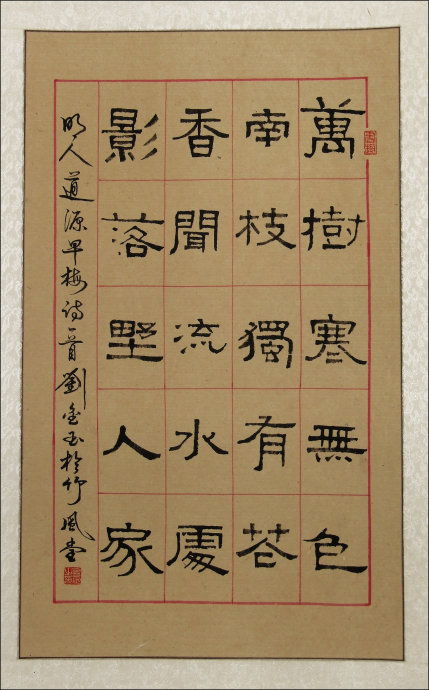 萬樹寒無色
南枝獨有花
香聞流水處
影落墅人家
明人道源早梅诗一首劉金玉於竹風堂